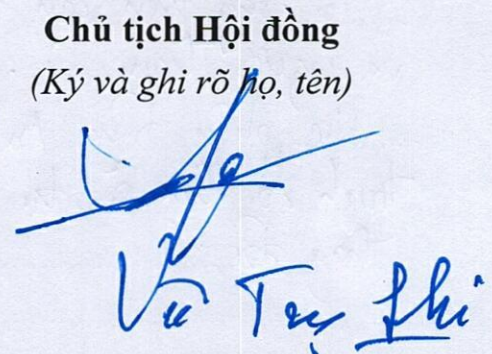 Chủ tịch Hội đồng
(Ký và ghi rõ họ, tên)
Vũ